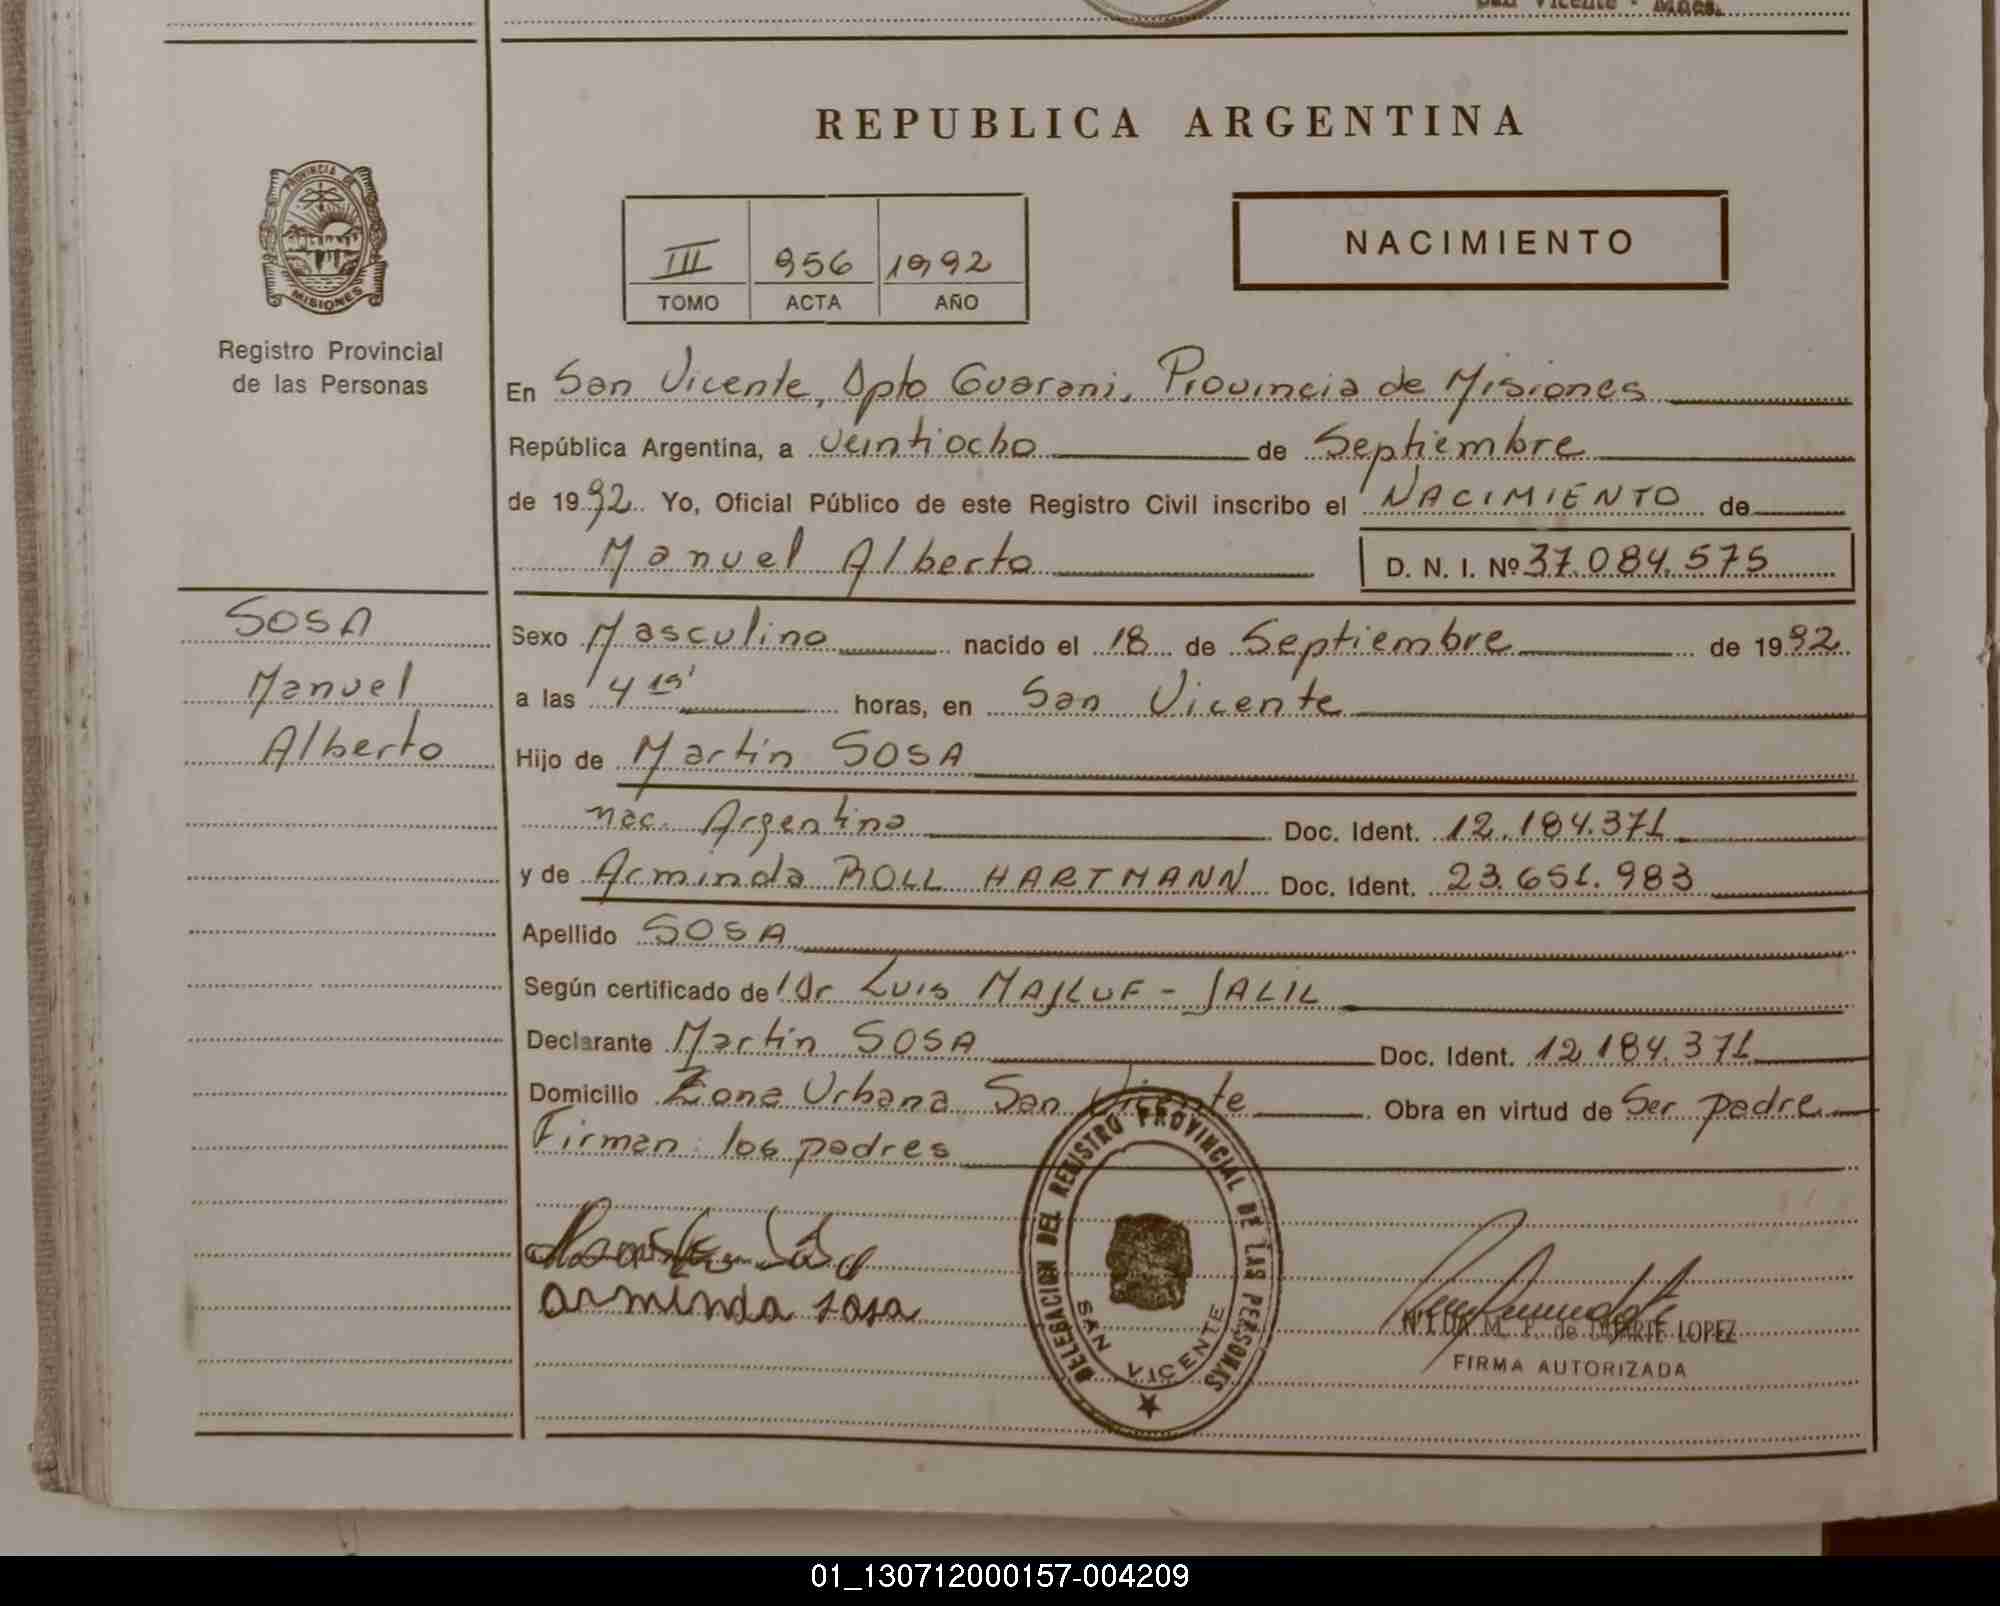 San Vicente - Mnes.
REPUBLICA ARGENTINA
PROVINCIA DE
MISIONES
Registro Provincial
de las Personas
III 956 1992
TOMO ACTA AÑO
NACIMIENTO
En San Vicente, Dpto Guarani, Provincia de Misiones
República Argentina, a veintiocho de Septiembre
de 1992. Yo, Oficial Público de este Registro Civil inscribo el NACIMIENTO de
Manuel Alberto D. N. I. Nº 37.084.575
SOSA
Manuel
Alberto
Sexo Masculino nacido el 18 de Septiembre de 1992
a las 4 15' horas, en San Vicente
Hijo de Martín SOSA
nac. Argentina Doc. Ident. 12.184.371
y de Arminda ROLL HARTMANN Doc. Ident. 23.651.983
Apellido SOSA
Según certificado de Dr Luis MAJLUF - JALIL
Declarante Martín SOSA Doc. Ident. 12.184.371
Domicilio Zona Urbana San Vicente Obra en virtud de Ser padre
Firman: los padres
arminda sosa
DELEGACION DEL REGISTRO PROVINCIAL DE LAS PERSONAS
SAN VICENTE
de DUARTE LOPEZ
FIRMA AUTORIZADA
01_130712000157-004209